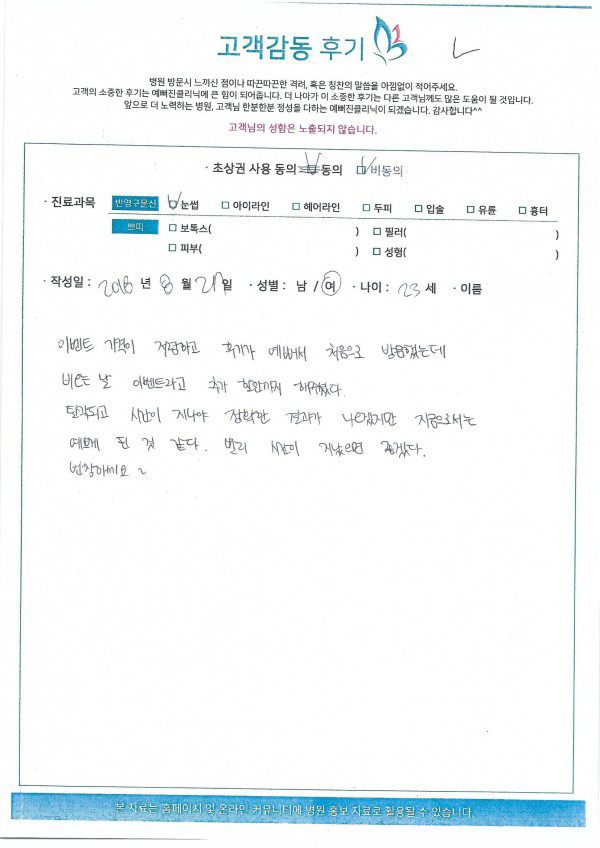 고객감동 후기
병원 방문시 느끼신 점이나 따끈따끈한 격려, 혹은 칭찬의 말씀을 아낌없이 적어주세요.
고객의 소중한 후기는 예뻐진클리닉에 큰 힘이 되어줍니다. 더 나아가 이 소중한 후기는 다른 고객님께도 많은 도움이 될 것입니다.
앞으로 더 노력하는 병원, 고객님 한분한분 정성을 다하는 예뻐진클리닉이 되겠습니다. 감사합니다^^
고객님의 성함은 노출되지 않습니다.
· 초상권 사용 동의 동의 □ 비동의
· 진료과목 반영구문신 □ 눈썹 □ 아이라인 □ 헤어라인 □ 두피 □ 입술 □ 유륜 □ 흉터
쁘띠 □ 보톡스( ) □ 필러( )
□ 피부( ) □ 성형( )
· 작성일 : 2018 년 8 월 21 일 · 성별 : 남 / 여 · 나이 : 23 세 · 이름
이벤트 가격이 저렴하고 후기가 예뻐서 처음으로 방문했는데
비오는 날 이벤트라고 추가 할인까지 해주셨다.
탈각되고 시간이 지나야 정확한 결과가 나오겠지만 지금으로서는
예쁘게 된 것 같다. 빨리 시간이 지났으면 좋겠다.
번창하세요 ~
본 자료는 홈페이지 및 온라인 커뮤니티에 병원 홍보 자료로 활용될 수 있습니다.